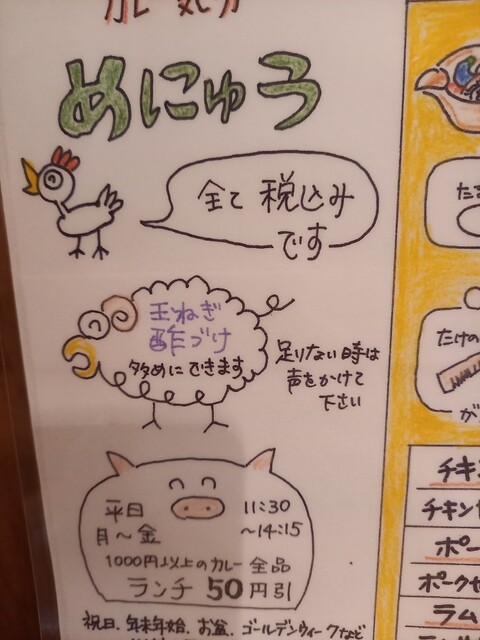 めにゅう
全て税込み
です
玉ねぎ
酢づけ
多めにできます
足りない時は
声をかけて
下さい
平日
月～金
11:30
～14:15
1000円以上のカレー全品
ランチ50円引
祝日、年末年始、お盆、ゴールデンウィークなど
たけの
が
チキ
チキン
ポー
ポーク
ラム